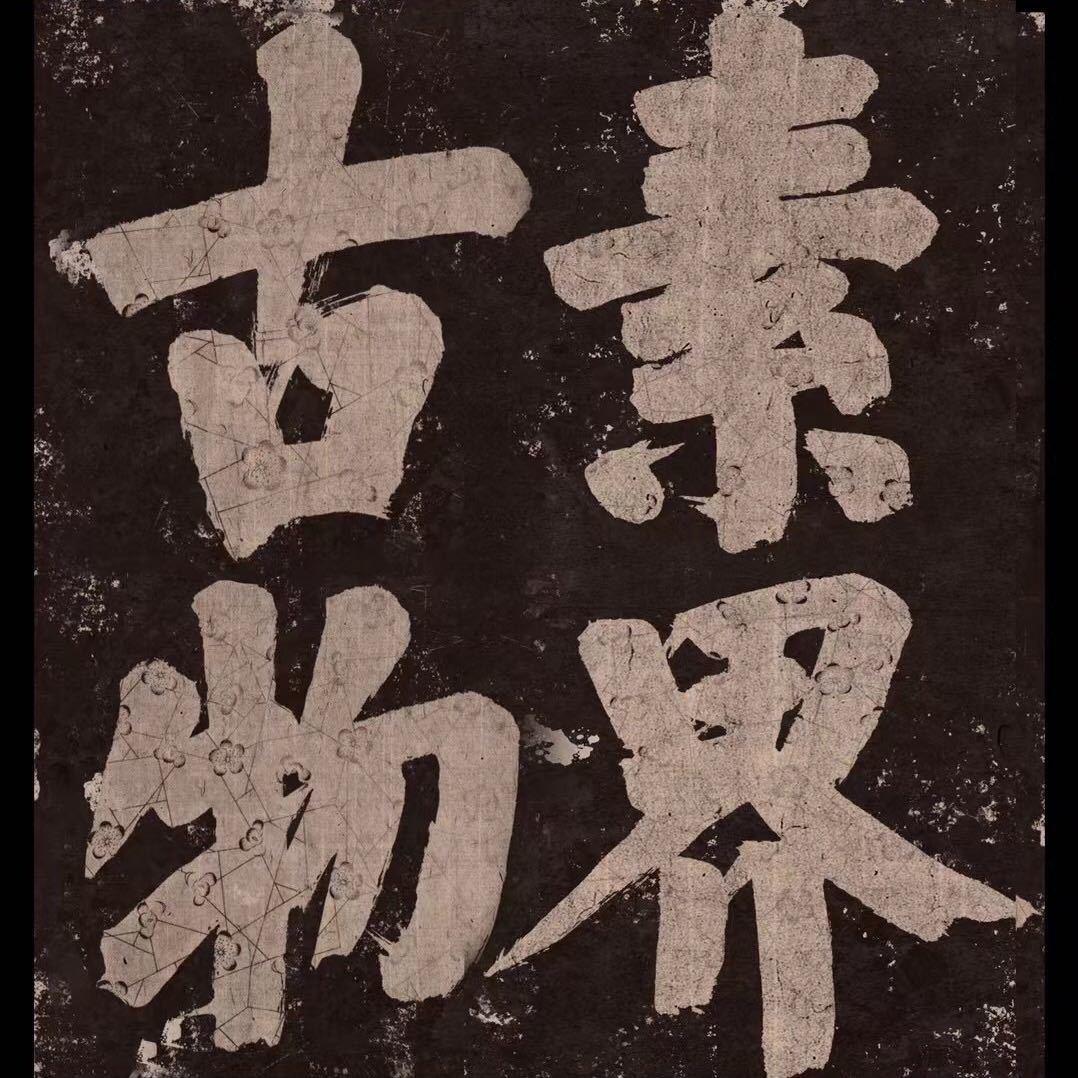 素界
古物